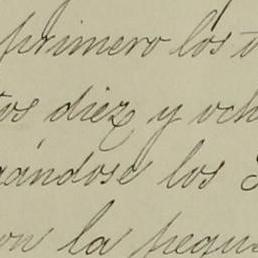 primero los
tos diez y och
ándose los
on la pequ